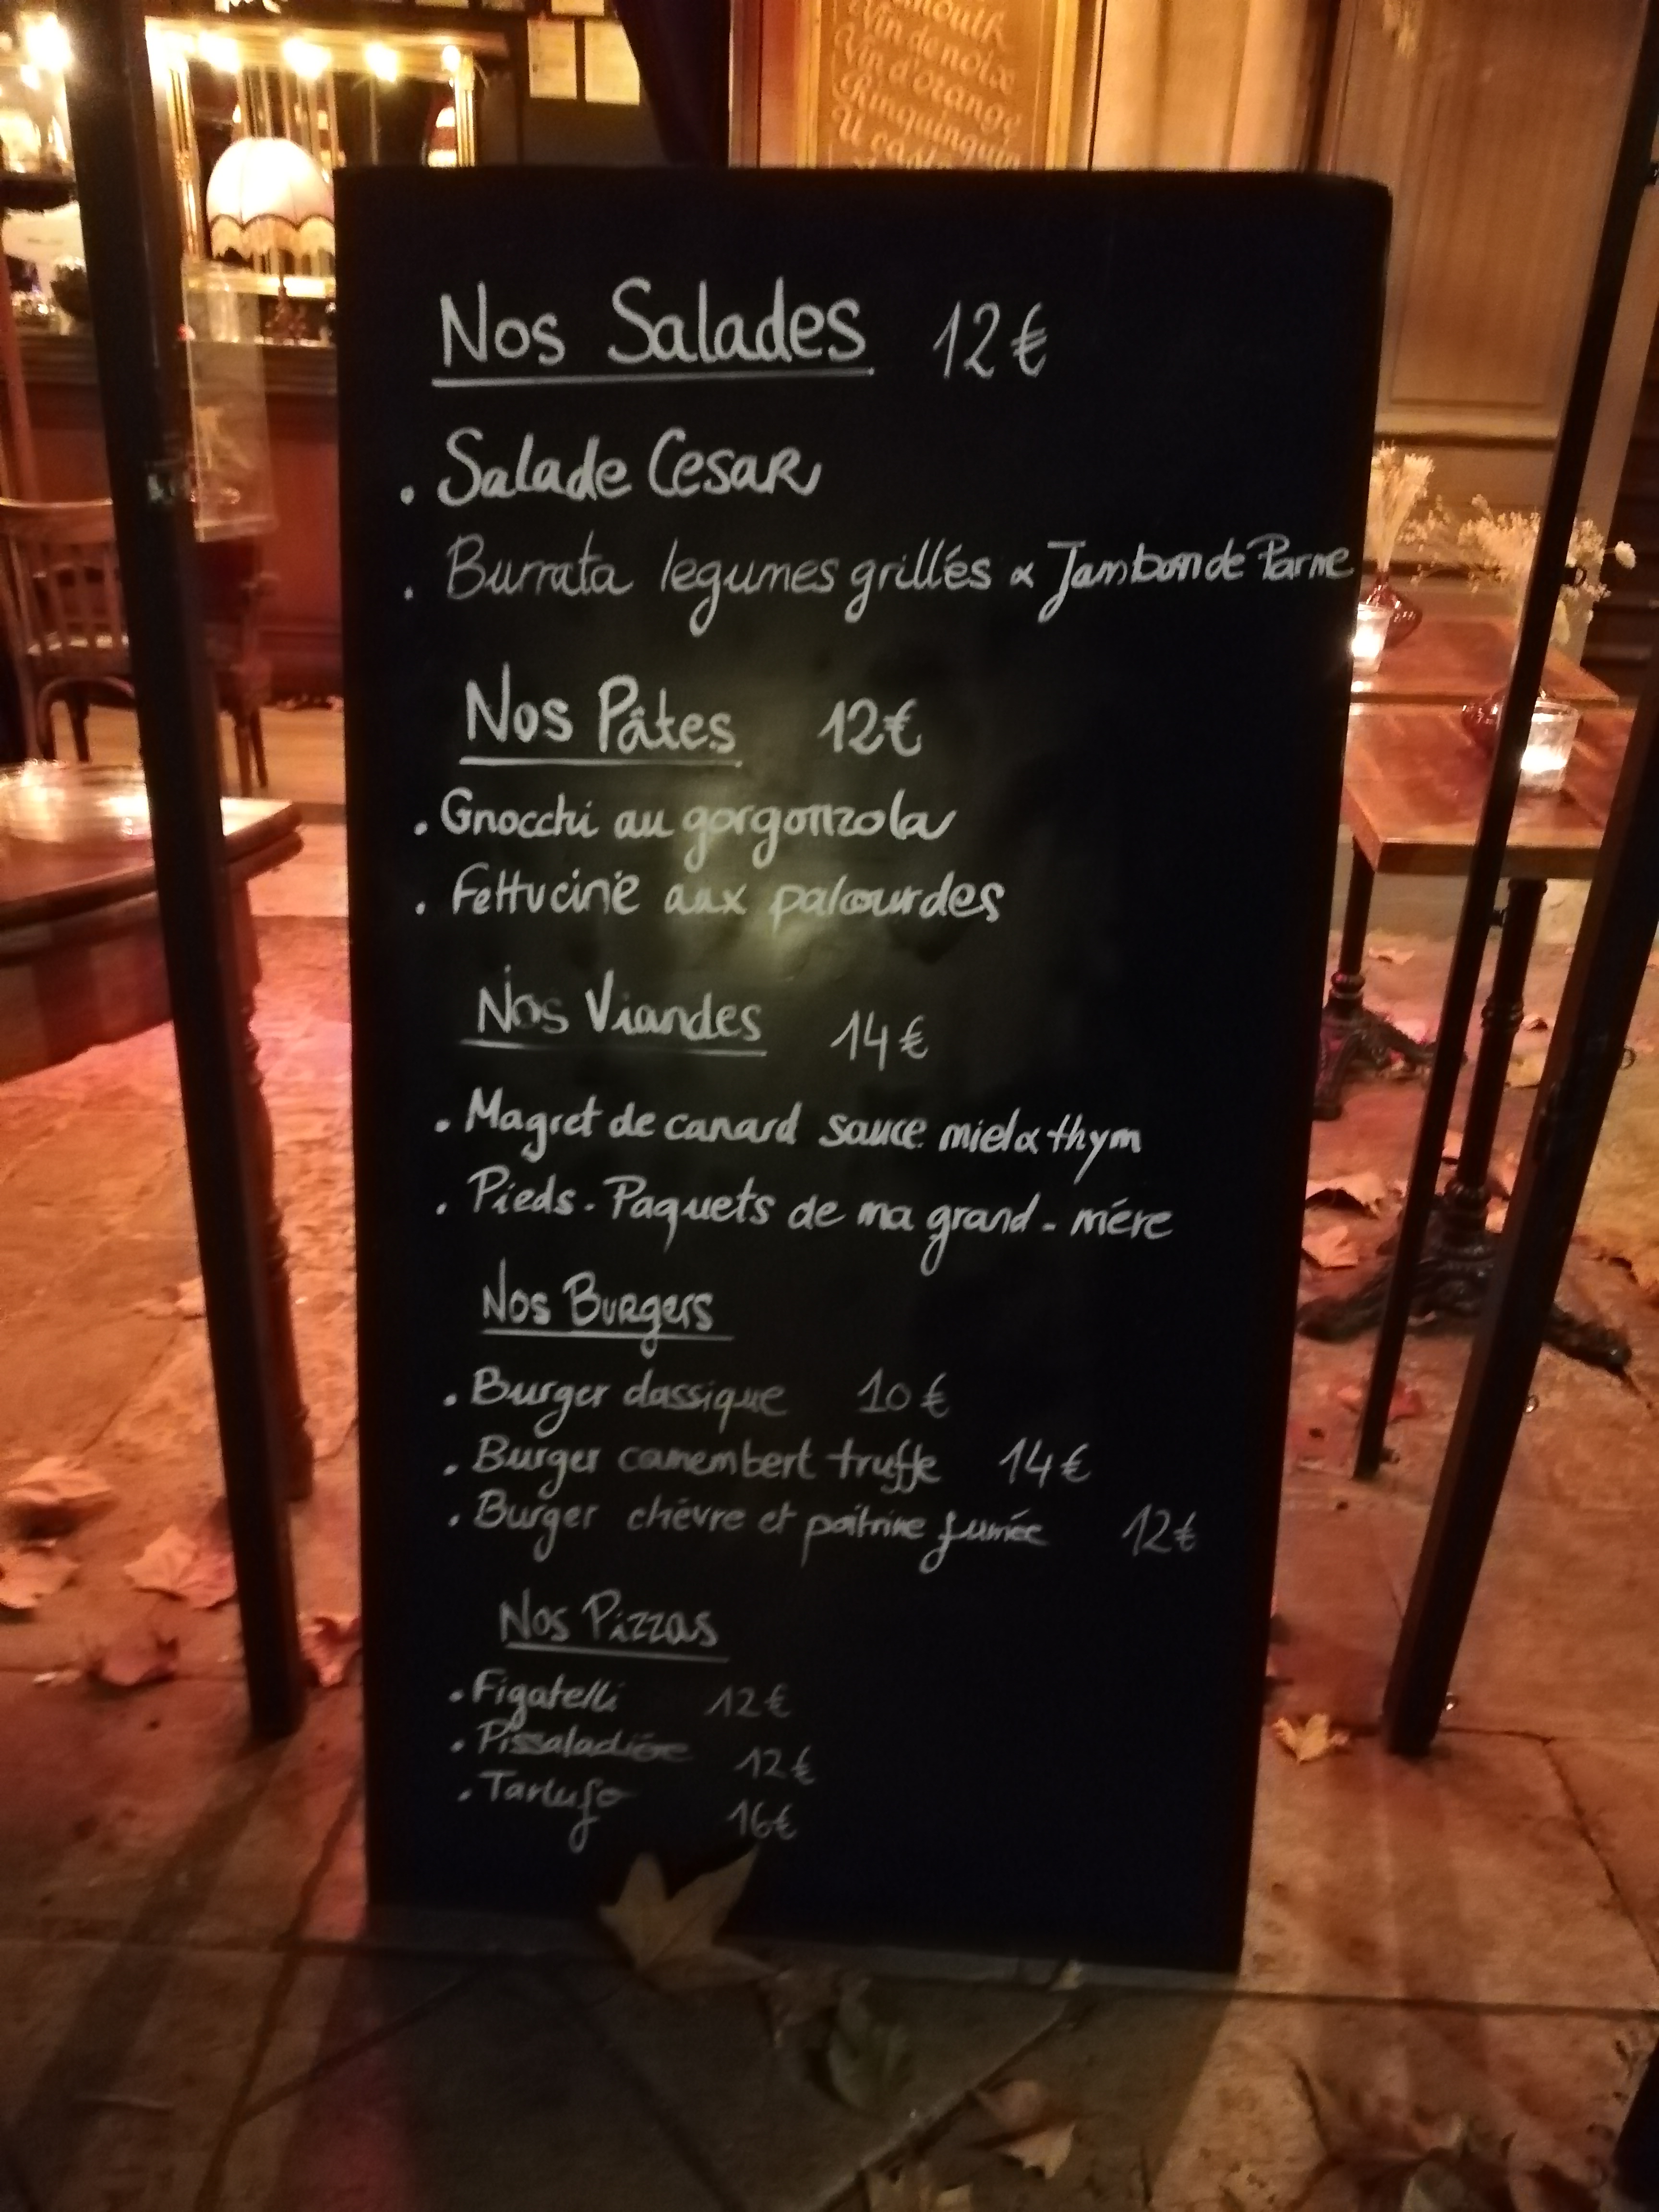 Vin de noix
Vin d'orange
Rinquinquin
Nos Salades 12€
. Salade Cesar
. Burrata legumes grillés & Jambon de Parme
Nos Pâtes 12€
. Gnocchi au gorgonzola
. Fettucine aux palourdes
Nos Viandes 14€
. Magret de canard sauce miel & thym
. Pieds-Paquets de ma grand-mére
Nos Burgers
. Burger classique 10€
. Burger camembert truffe 14€
. Burger chèvre et poitrine fumée 12€
Nos Pizzas
. Figatelli 12€
. Pissaladière 12€
. Tartufo 16€